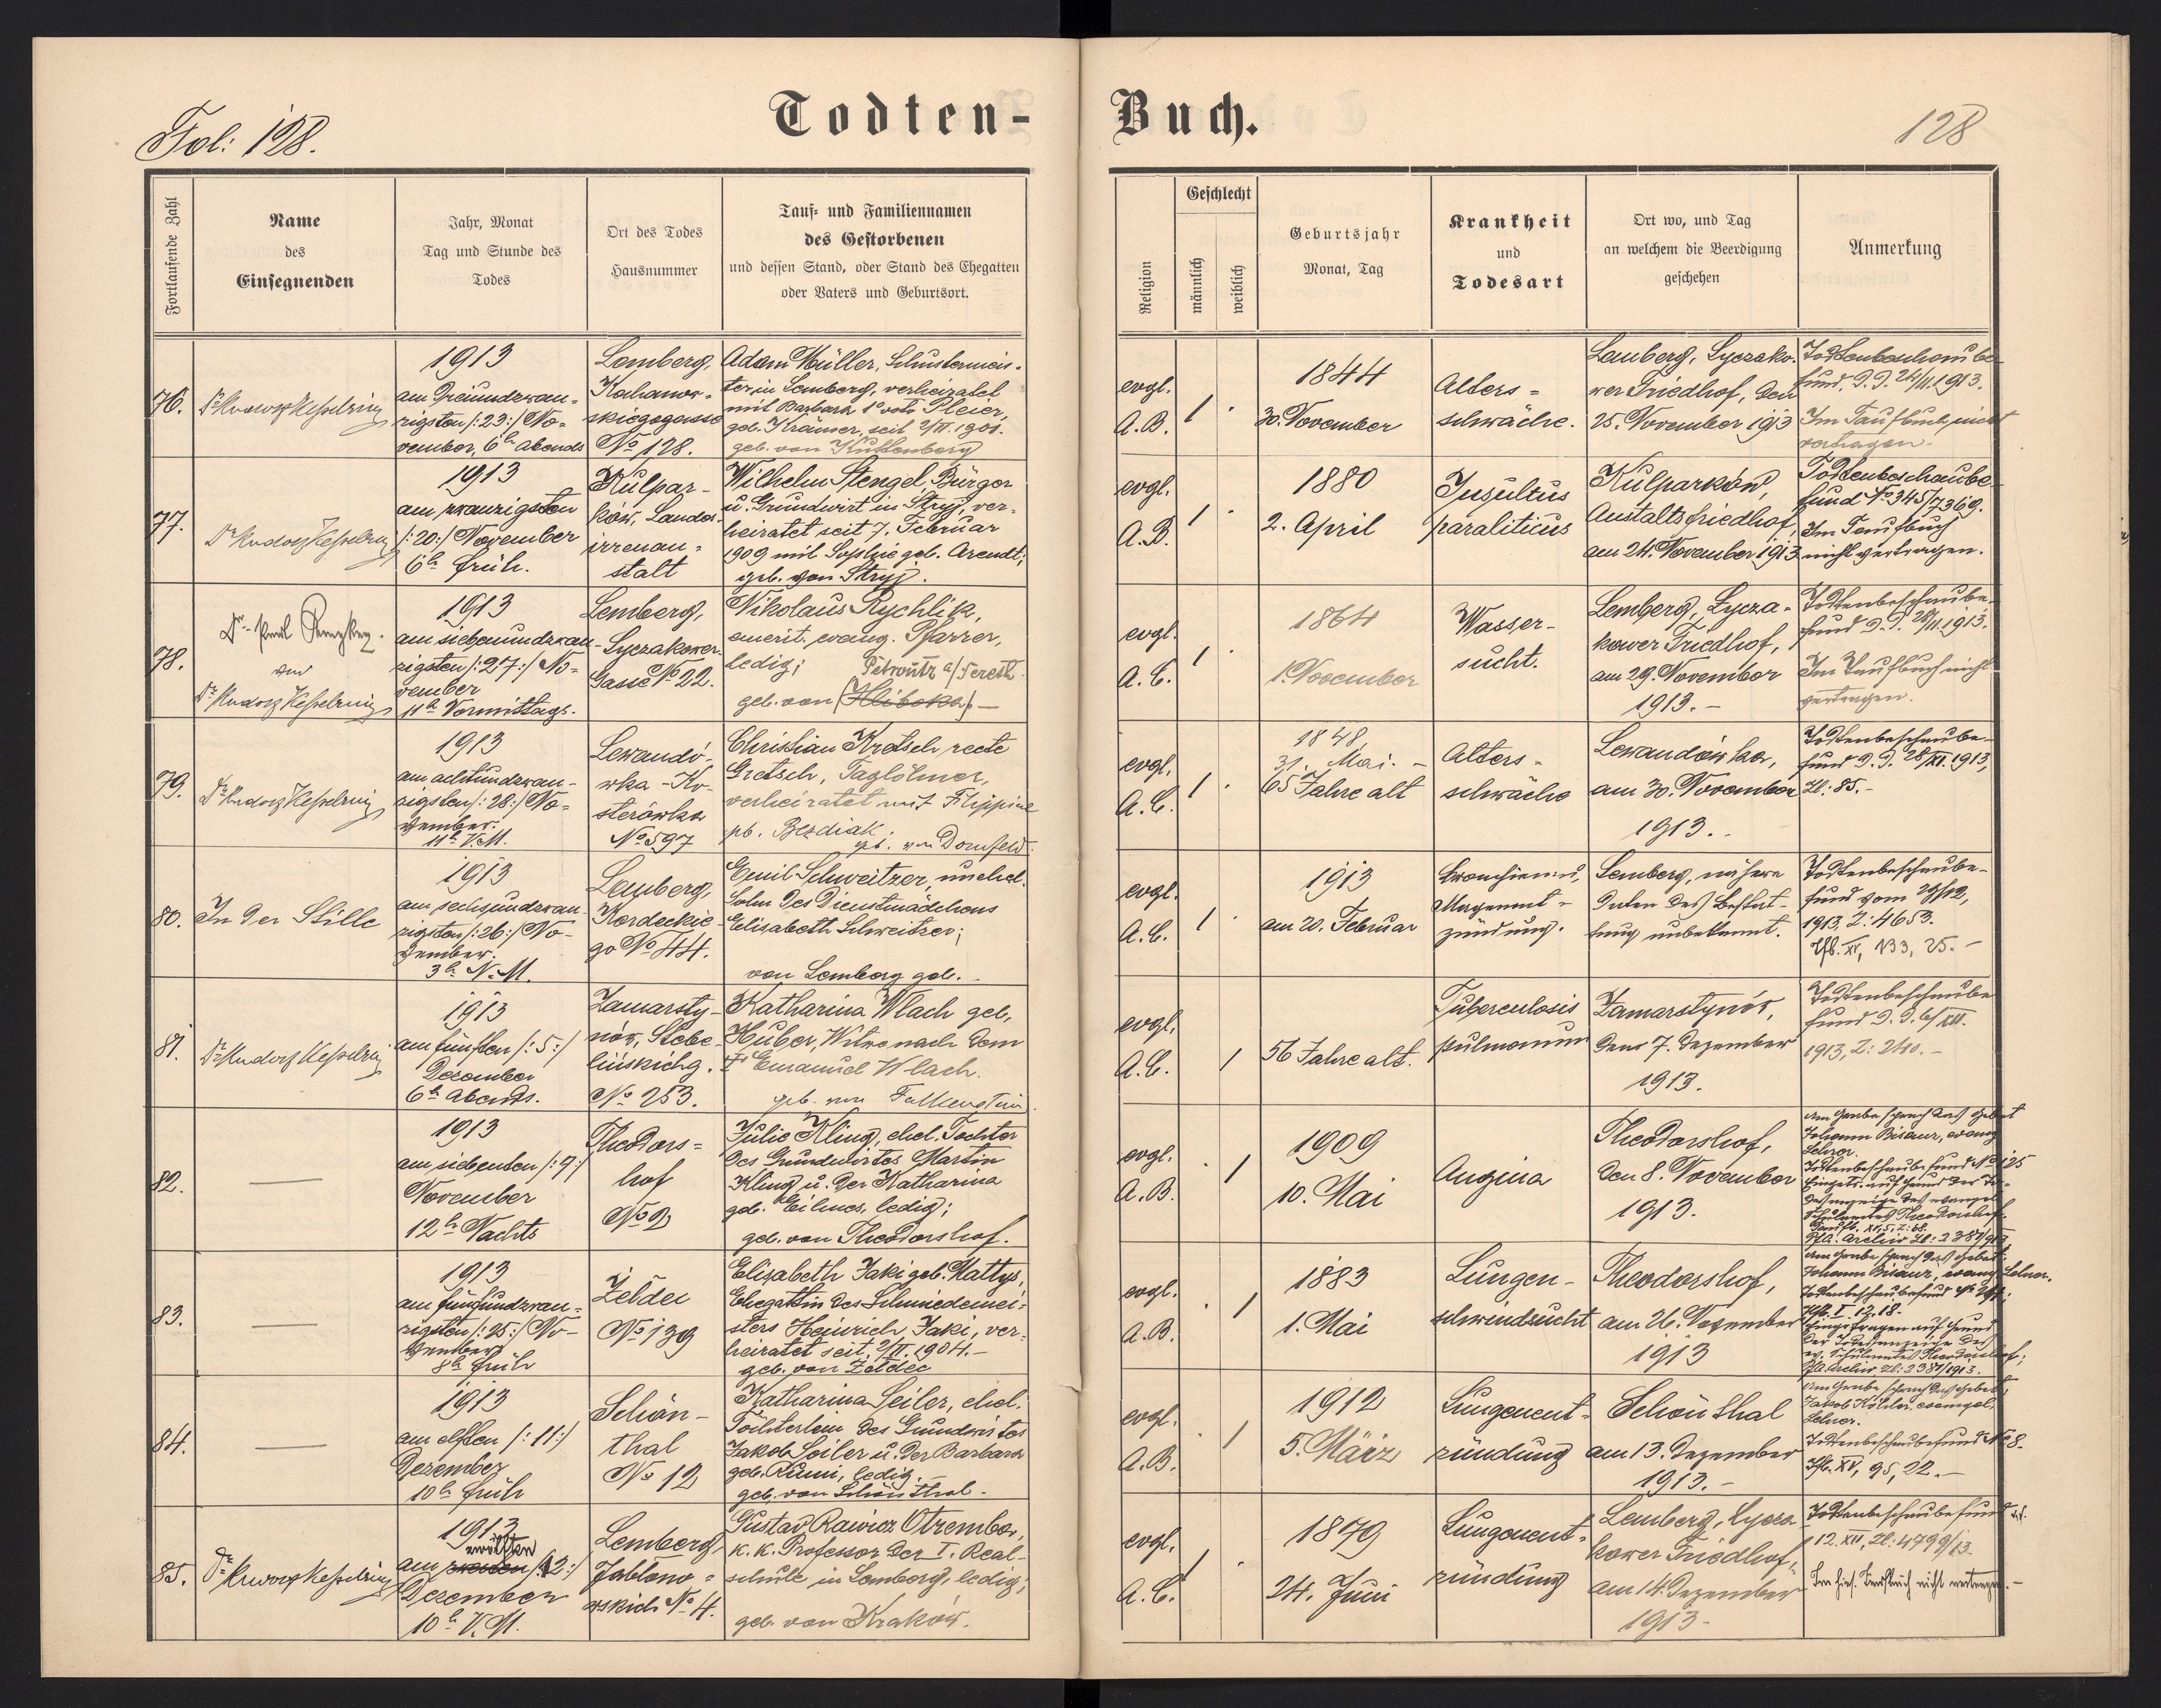 Fol: 128.
Todten-Buch.
128
Fortlaufende Zahl
Name
des
Einsegnenden
Jahr, Monat
Tag und Stunde des
Todes
Ort des Todes
Hausnummer
Tauf- und Familiennamen
des Gestorbenen
und dessen Stand, oder Stand des Ehegatten
oder Vaters und Geburtsort.
Religion
Geschlecht
männlich
weiblich
Geburtsjahr
Monat, Tag
Krankheit
und
Todesart
Ort wo, und Tag
an welchem die Beerdigung
geschehen
Anmerkung
76.
Dr. Rudolf Kesselring
1913
am dreiundzwan-
zigsten /:23:/ No-
vember, 6h abends
Lemberg,
Kochanow-
skiegogasse
No 128.
Adam Müller, Schustermeis-
ter in Lemberg, verheiratet
mit Barbara 1o voto Pleier,
geb. Krämer, seit
geb. von Kuttenberg
evgl.
A.B.
1 .
1844
30. November
Alters-
schwäche.
Lemberg, Lyczako-
wer Friedhof, den
25. November 1913
Todtenbeschaube-
fund. D. D. 24/11 1913.
Im Taufbuch nicht
vertragen.
77.
Dr. Rudolf Kesselring
1913
am zwanzigsten
/:20:/ November
6h früh.
Kulpar-
ków, Landes-
irrenan-
stalt
Wilhelm Stengel, Bürger
u. Grundwirt in Stryj, ver-
heiratet seit 7. Februar
1909 mit Sophie geb. Arendt;
geb. von Stryj.
evgl.
A.B.
1 .
1880
2. April
Insultus
paraliticus
Kulparków,
Anstaltsfriedhof,
am 24. November 1913
Todtenbeschaube-
fund No 345/7369.
Im Taufbuch
nicht vertragen.
78.
Dr.
und
Dr. Rudolf Kesselring
1913
am siebenundzwan-
zigsten /:27:/ No-
vember
11h Vormittags.
Lemberg,
Lyczakower-
Gasse No 22.
Nikolaus Rychlik,
emerit. evang. Pfarrer,
ledig;
Petroutz a/Sereth
geb. von (Hliboka).-
evgl.
A.C.
1 .
1864
1. November
Wasser-
sucht.
Lemberg, Lycza-
kower Friedhof,
am 29. November
1913.-
Todtenbeschaube-
fund D. D. 28/11. 1913.
Im Taufbuch nicht
vertragen.
79.
Dr. Rudolf Kesselring
1913
am achtundzwan-
zigsten /:28:/ No-
vember.
11h V.M.
Lewandó-
wka - Ko-
sterówka
No 597
Christian Kretsch recte
Gretsch, Taglöhner,
verheiratet mit Filippine
gb. Bezdiak;
gb. von Dornfeld.
evgl.
A.C.
1 .
1848
31. Mai. -
65 Jahre alt
Alters-
schwäche
Lewandówka,
am 30. November
1913.
Todtenbeschaube-
fund D. D. 28/XI. 1913,
Zl: 85.-
80.
In der Stille
1913
am sechsundzwan-
zigsten /:26:/ No-
vember.
3h N.M.
Lemberg,
Kordeckie-
go No 44.
Emil Schweitzer, unehel.
Sohn des Dienstmädchens
Elisabeth Schweitzer;
von Lemberg geb.
evgl.
A.C.
1 .
1913
am 20. Februar
Bronchien u.
Magenent-
zündung.
Lemberg, nähere
Daten des Bestat-
tung unbekannt.
Todtenbeschaube-
fund vom 29/12,
1913, Z: 4653.
Tfb. XV, 133, 25.-
81.
Dr. Rudolf Kesselring
1913
am fünften /:5:/
Dezember
6h abends.
Zamarsty-
nów, Stebe-
No 253.
Katharina Wlach geb.
Huber, Witwe nach dem
† Emanuel Wlach.
geb. von Falkenstein
evgl.
A.C.
1
56 Jahre alt.
Tuberculosis
pulmonum
Zamarstynów,
den 7. Dezember
1913.
Todtenbeschaube-
fund D. D. 6/XII.
1913, Z: 240.-
82.
1913
am siebenten /:7:/
November
12h Nachts
Theodors-
hof
No 2
Julie Kling, ehel. Tochter
des Grundwirtes Martin
Kling u. der Katharina
geb. Eilmes, ledig;
geb. von Theodorshof.
evgl.
A.B.
. 1
1909
10. Mai
Angina
Theodorshof,
den 8. November
1913.
Am Grabe sprach das Gebet
Johann Bisanz, evang.
Lehrer.
Todtenbeschaubefund No 125
Eingetr. auf Grund der To-
desanzeige des evangel.
Schulamtes Theodorshof.
Taufb. XV, 5, Z: 68.
Pfa. Archiv Zl: 2387/913
83.
1913
am fünfundzwan-
zigsten /:25:/ No-
vember
8h früh
Żeldec
No 139
Elisabeth Jaki geb. Mattys,
Ehegattin des Schmiedemei-
sters Heinrich Jaki, ver-
heiratet seit 2/II. 1904.-
geb. von Żeldec
evgl.
A.B.
. 1
1883
1. Mai
Lungen-
schwindsucht
Theodorshof,
am 26. November
1913
Am Grabe sprach das Gebet:
Johann Bisanz, evang. Lehrer.
Eingetragen auf Grund
der Todesanzeige des
ev. Schulamtes Theodorshof;
Pfa. Archiv Zl: 2387/1913.
84.
1913
am elften /:11:/
Dezember
10h früh
Schön-
thal
No 12
Katharina Seiler, ehel.
Töchterlein des Grundwirtes
Jakob Seiler u. der Barbara
geb. Kuni, ledig.-
geb. von Schönthal.-
evgl.
A.B.
. 1
1912
5. März
Lungenent-
zündung
Schönthal
am 13. Dezember
1913.-
Am Grabe sprach das Gebet,
Jakob Köhler evangel.
Lehrer.
Todtenbeschaubefund No 8.
Tfb. XV, 95, 22.-
85.
Dr. Rudolf Kesselring
1913
zwölften
am zweiten /:12:/
Dezember
10h V.M.
Lemberg,
Jabłono-
wskich No 4.
Gustav Rawicz Otremba,
k. k. Professor der I. Real-
schule in Lemberg, ledig;
geb. von Kraków.
evgl.
A.C.
1 .
1879
24. Juni
Lungenent-
zündung
Lemberg, Lycza-
kower Friedhof,
am 14. Dezember
1913-
Todtenbeschaubefund
12. XII, Zl: 4799/13
Im hies. Taufbuch nicht vertragen.-